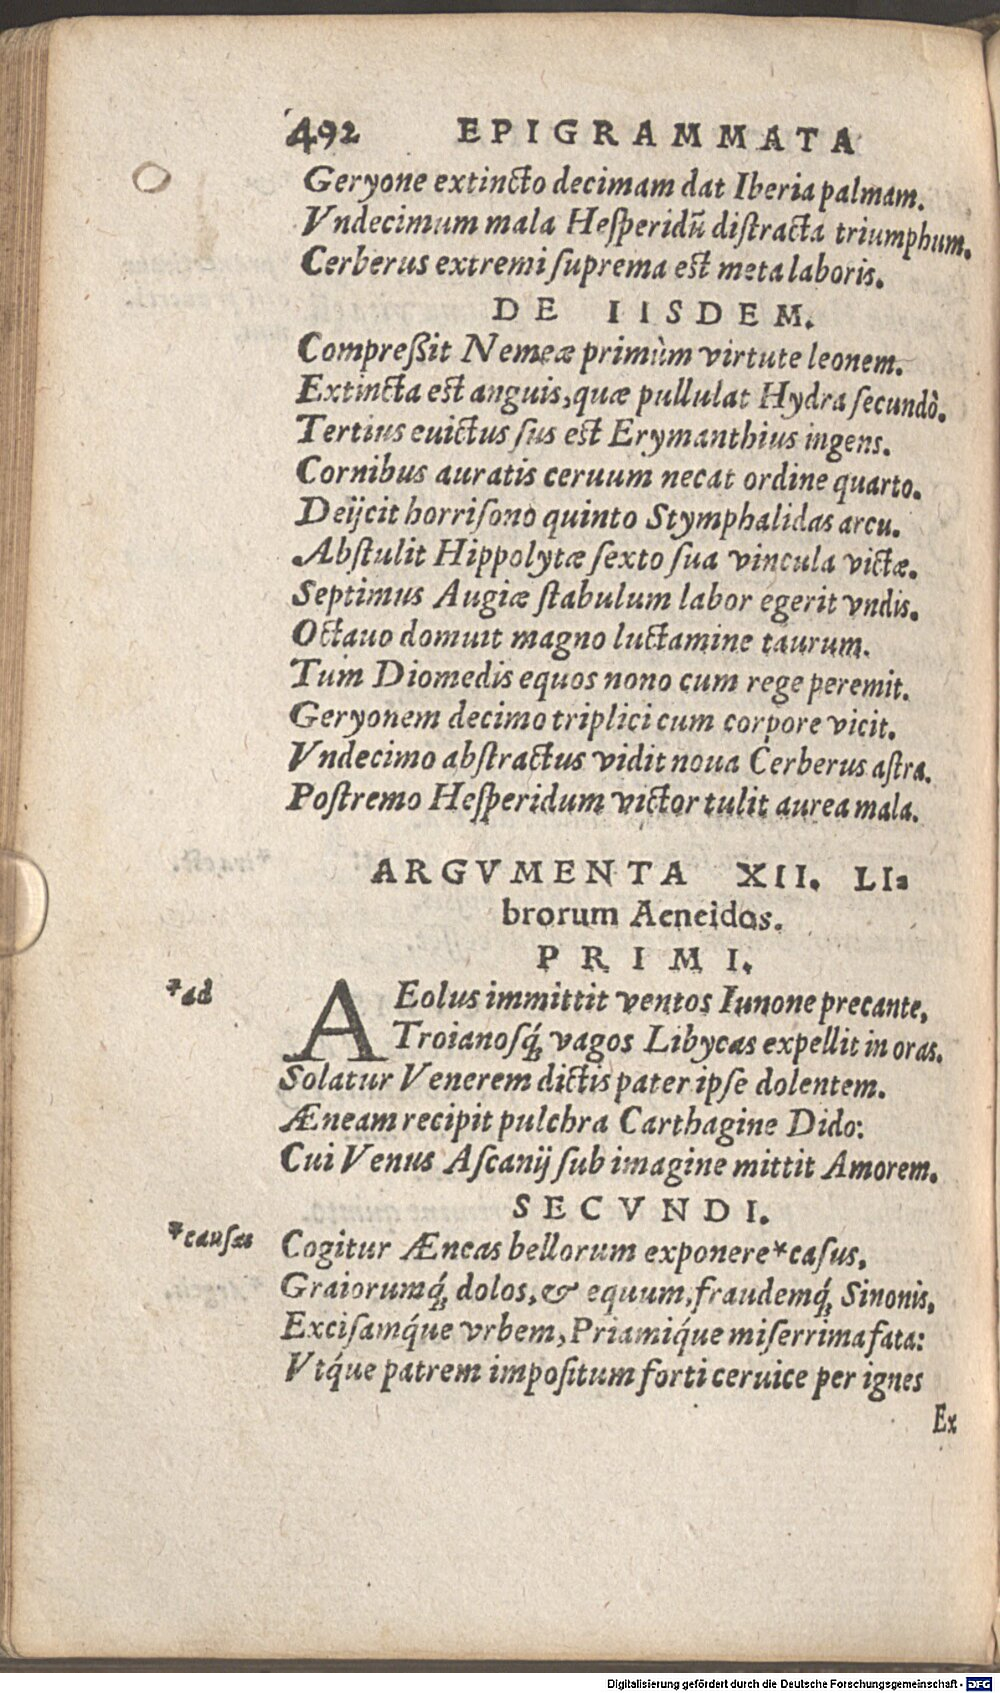 492 EPIGRAMMATA
Geryone extincto decimam dat Iberia palmam.
Vndecimum mala Heſperidũ diſtracta triumphum.
Cerberus extremi ſuprema est meta laboris.
DE IISDEM.
Compreßit Nemeæ primùm virtute leonem.
Extincta est anguis, quæ pullulat Hydra ſecundò.
Tertius euictus ſus est Erymanthius ingens.
Cornibus auratis ceruum necat ordine quarto.
Deijcit horriſono quinto Stymphalidas arcu.
Abſtulit Hippolytæ ſexto ſua vincula victæ.
Septimus Augiæ ſtabulum labor egerit vndis.
Octauo domuit magno luctamine taurum.
Tum Diomedis equos nono cum rege peremit.
Geryonem decimo triplici cum corpore vicit.
Vndecimo abſtractus vidit noua Cerberus aſtra.
Poſtremo Heſperidum victor tulit aurea mala.
ARGVMENTA XII. LI=
brorum Aeneidos.
PRIMI.
*ad
AEolus immittit ventos Iunone precante,
Troianoſq́; vagos Libycas expellit in oras.
Solatur Venerem dictis pater ipſe dolentem.
Æneam recipit pulchra Carthagine Dido:
Cui Venus Aſcanij ſub imagine mittit Amorem.
SECVNDI.
*cauſas
Cogitur Æneas bellorum exponere*caſus,
Graiorumq́; dolos, & equum, fraudemq́; Sinonis,
Exciſamq́ue vrbem, Priamiq́ue miſerrima fata:
Vtq́ue patrem impoſitum forti ceruice per ignes
Ex
Digitalisierung gefördert durch die Deutsche Forschungsgemeinschaft - DFG